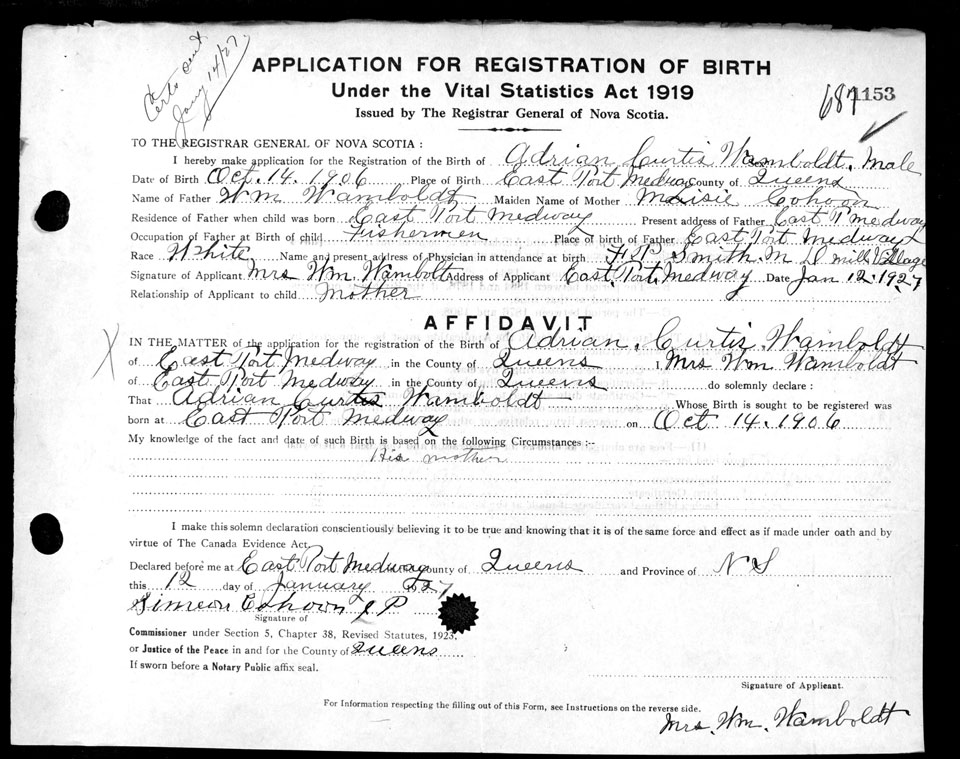 Certs sent
Jany 14/27.
APPLICATION FOR REGISTRATION OF BIRTH
Under the Vital Statistics Act 1919
Issued by The Registrar General of Nova Scotia.
687 1153
TO THE REGISTRAR GENERAL OF NOVA SCOTIA :
I hereby make application for the Registration of the Birth of Adrian Curtis Wamboldt. Male
Date of Birth Oct. 14. 1906 Place of Birth East Port Medway County of Queens
Name of Father Wm Wamboldt Maiden Name of Mother Cohoon
Residence of Father when child was born East Port Medway Present address of Father East P Medway
Occupation of Father at Birth of child Fishermen Place of birth of Father East Port Medway
Race White Name and present address of Physician in attendance at birth Smith. M D Mill Village
Signature of Applicant Mrs Wm. Wambolt Address of Applicant East. Port. Medway Date Jan 12. 1927
Relationship of Applicant to child Mother
AFFIDAVIT
IN THE MATTER of the application for the registration of the Birth of Adrian. Curtis. Wamboldt
of East Port Medway in the County of Queens I, Mrs Wm Wamboldt
of East Port Medway in the County of Queens do solemnly declare :
That Adrian Curtis Wamboldt Whose Birth is sought to be registered was
born at East Port Medway on Oct 14. 1906
My knowledge of the fact and date of such Birth is based on the following Circumstances :--
His mother
I make this solemn declaration conscientiously believing it to be true and knowing that it is of the same force and effect as if made under oath and by
virtue of The Canada Evidence Act.
Declared before me at East Port Medway County of Queens and Province of N S
this 12 day of January 1927
Simeon Cohoon J P
Signature of
Commissioner under Section 5, Chapter 38, Revised Statutes, 1923,
or Justice of the Peace in and for the County of Queens
If sworn before a Notary Public affix seal.
Signature of Applicant.
For Information respecting the filling out of this Form, see Instructions on the reverse side.
Mrs. Wm. Wamboldt